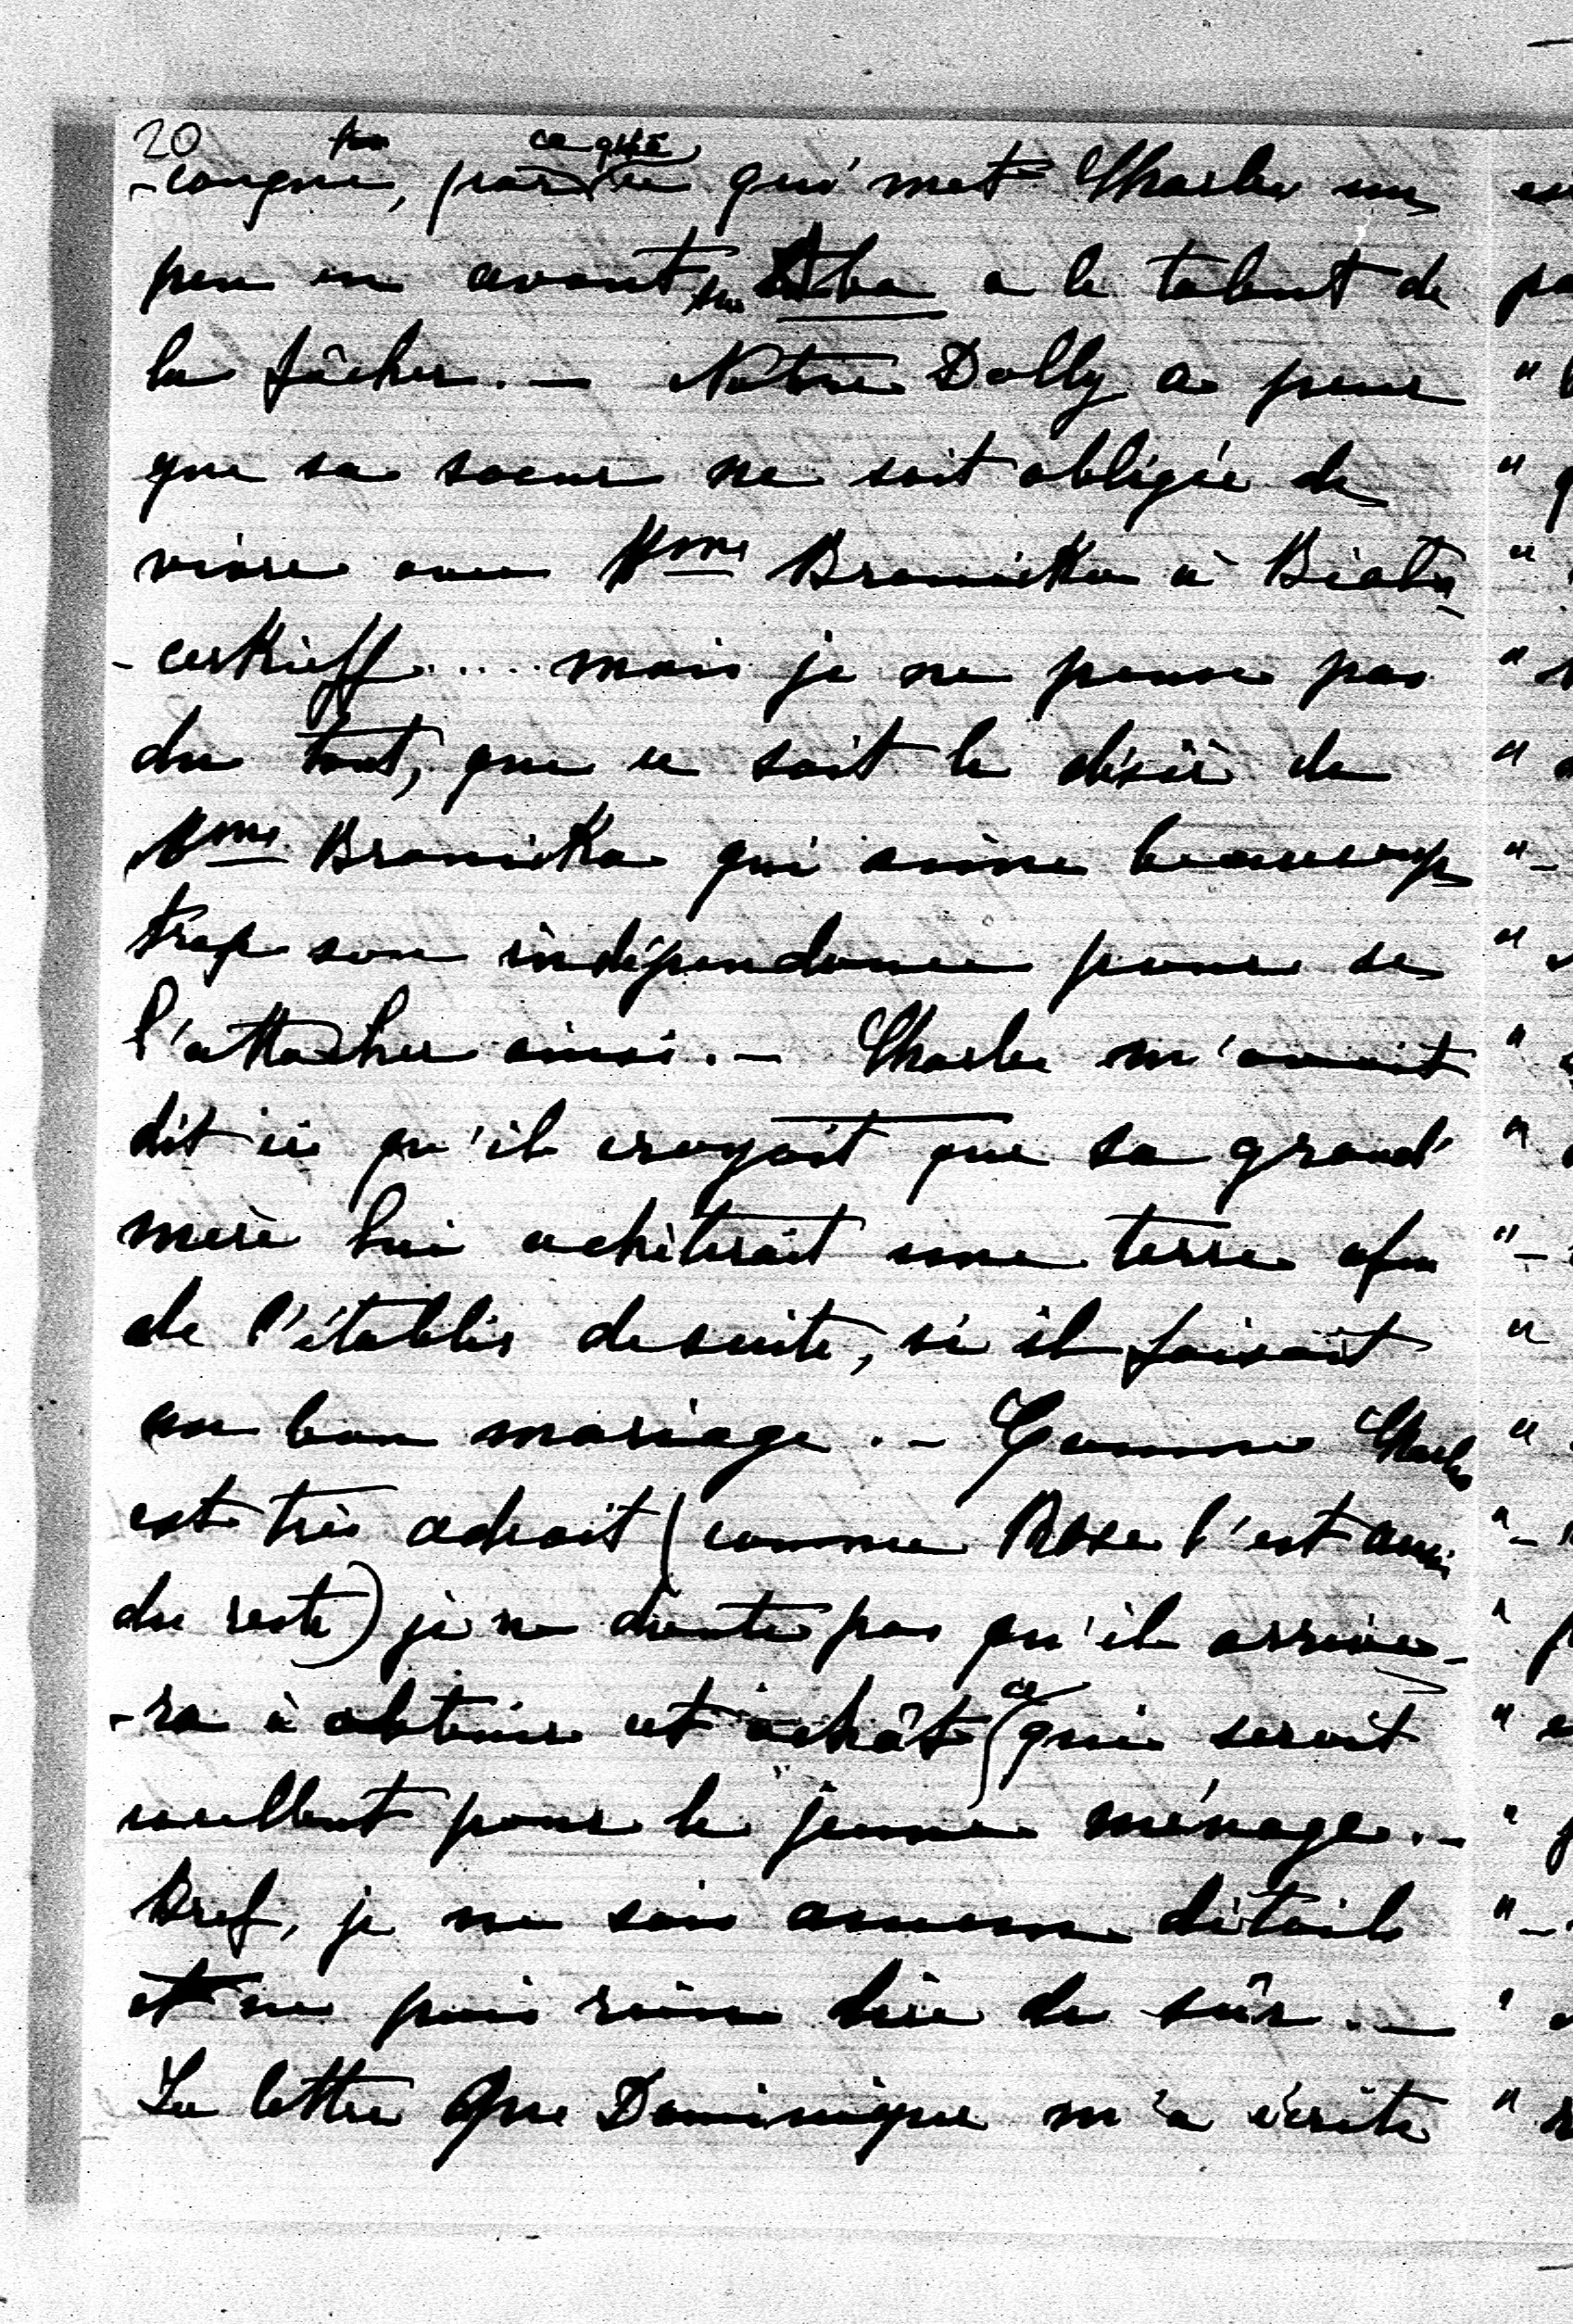 20
-congne, par ce que qu'met Charles un
peu en avant, sa Aba a le talent de
la fâcher. — Notre Dolly a peur
que sa soeur ne soit obligée de
vivre avec Mme Branicka à Biala
-cerkieff.... mais je ne pense pas
du tout, que ce soit le désir de
Mme Branicka qui aime beaucoup
trop son indépendance pour se
l'attacher ainsi. — Charles m'avait
dit ici qu'il croyait que sa grand'
mère lui achèterait une terre afin
de l'établir de suite, si il faisait
un bon mariage. — Comme Charles
est très adroit (comme Rose l'est aussi
du reste) je ne doute pas qu'il arrive-
-ra à obtenir cet achât ce qui serait
excellent pour le jeune ménage. —
Bref, je ne sais aucun détail
et ne puis rien dire de sûr. —
La lettre que Dominique m'a écrite